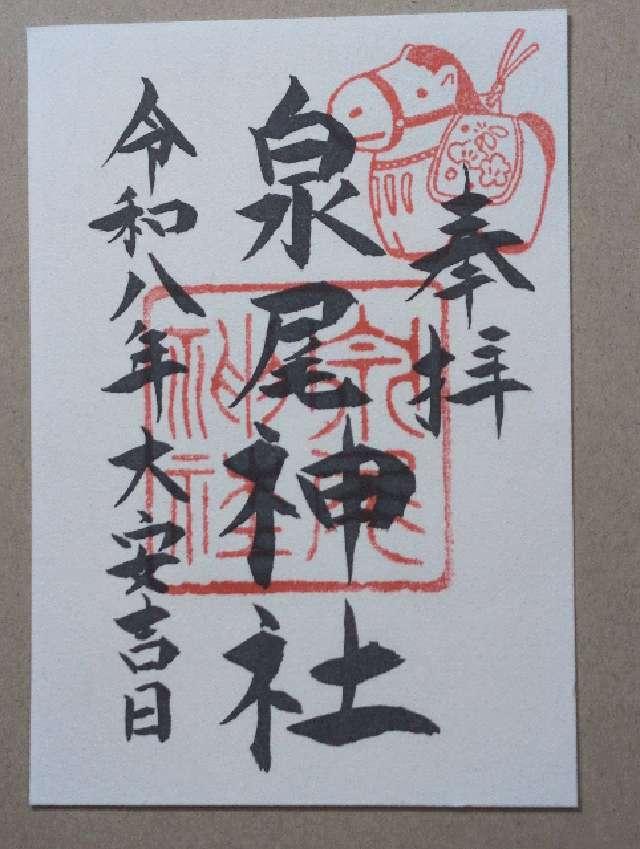 奉拝
泉尾神社
令和八年大安吉日
泉尾
神社